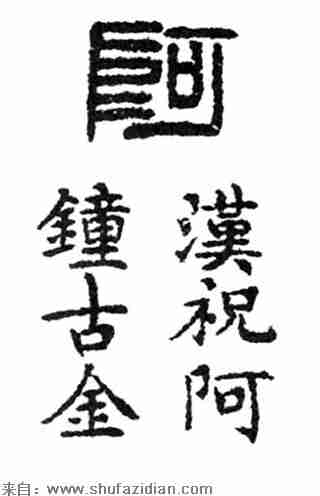 阿
漢祝阿
鐘古金
来自：www.shufazidian.com